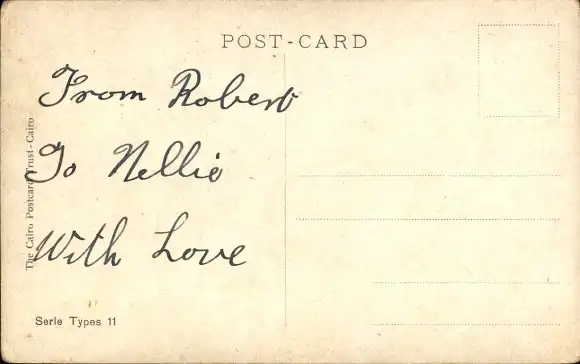 POST-CARD
From Robert
To Nellie
With Love
The Cairo Postcard Trust-Cairo
Serie Types 11